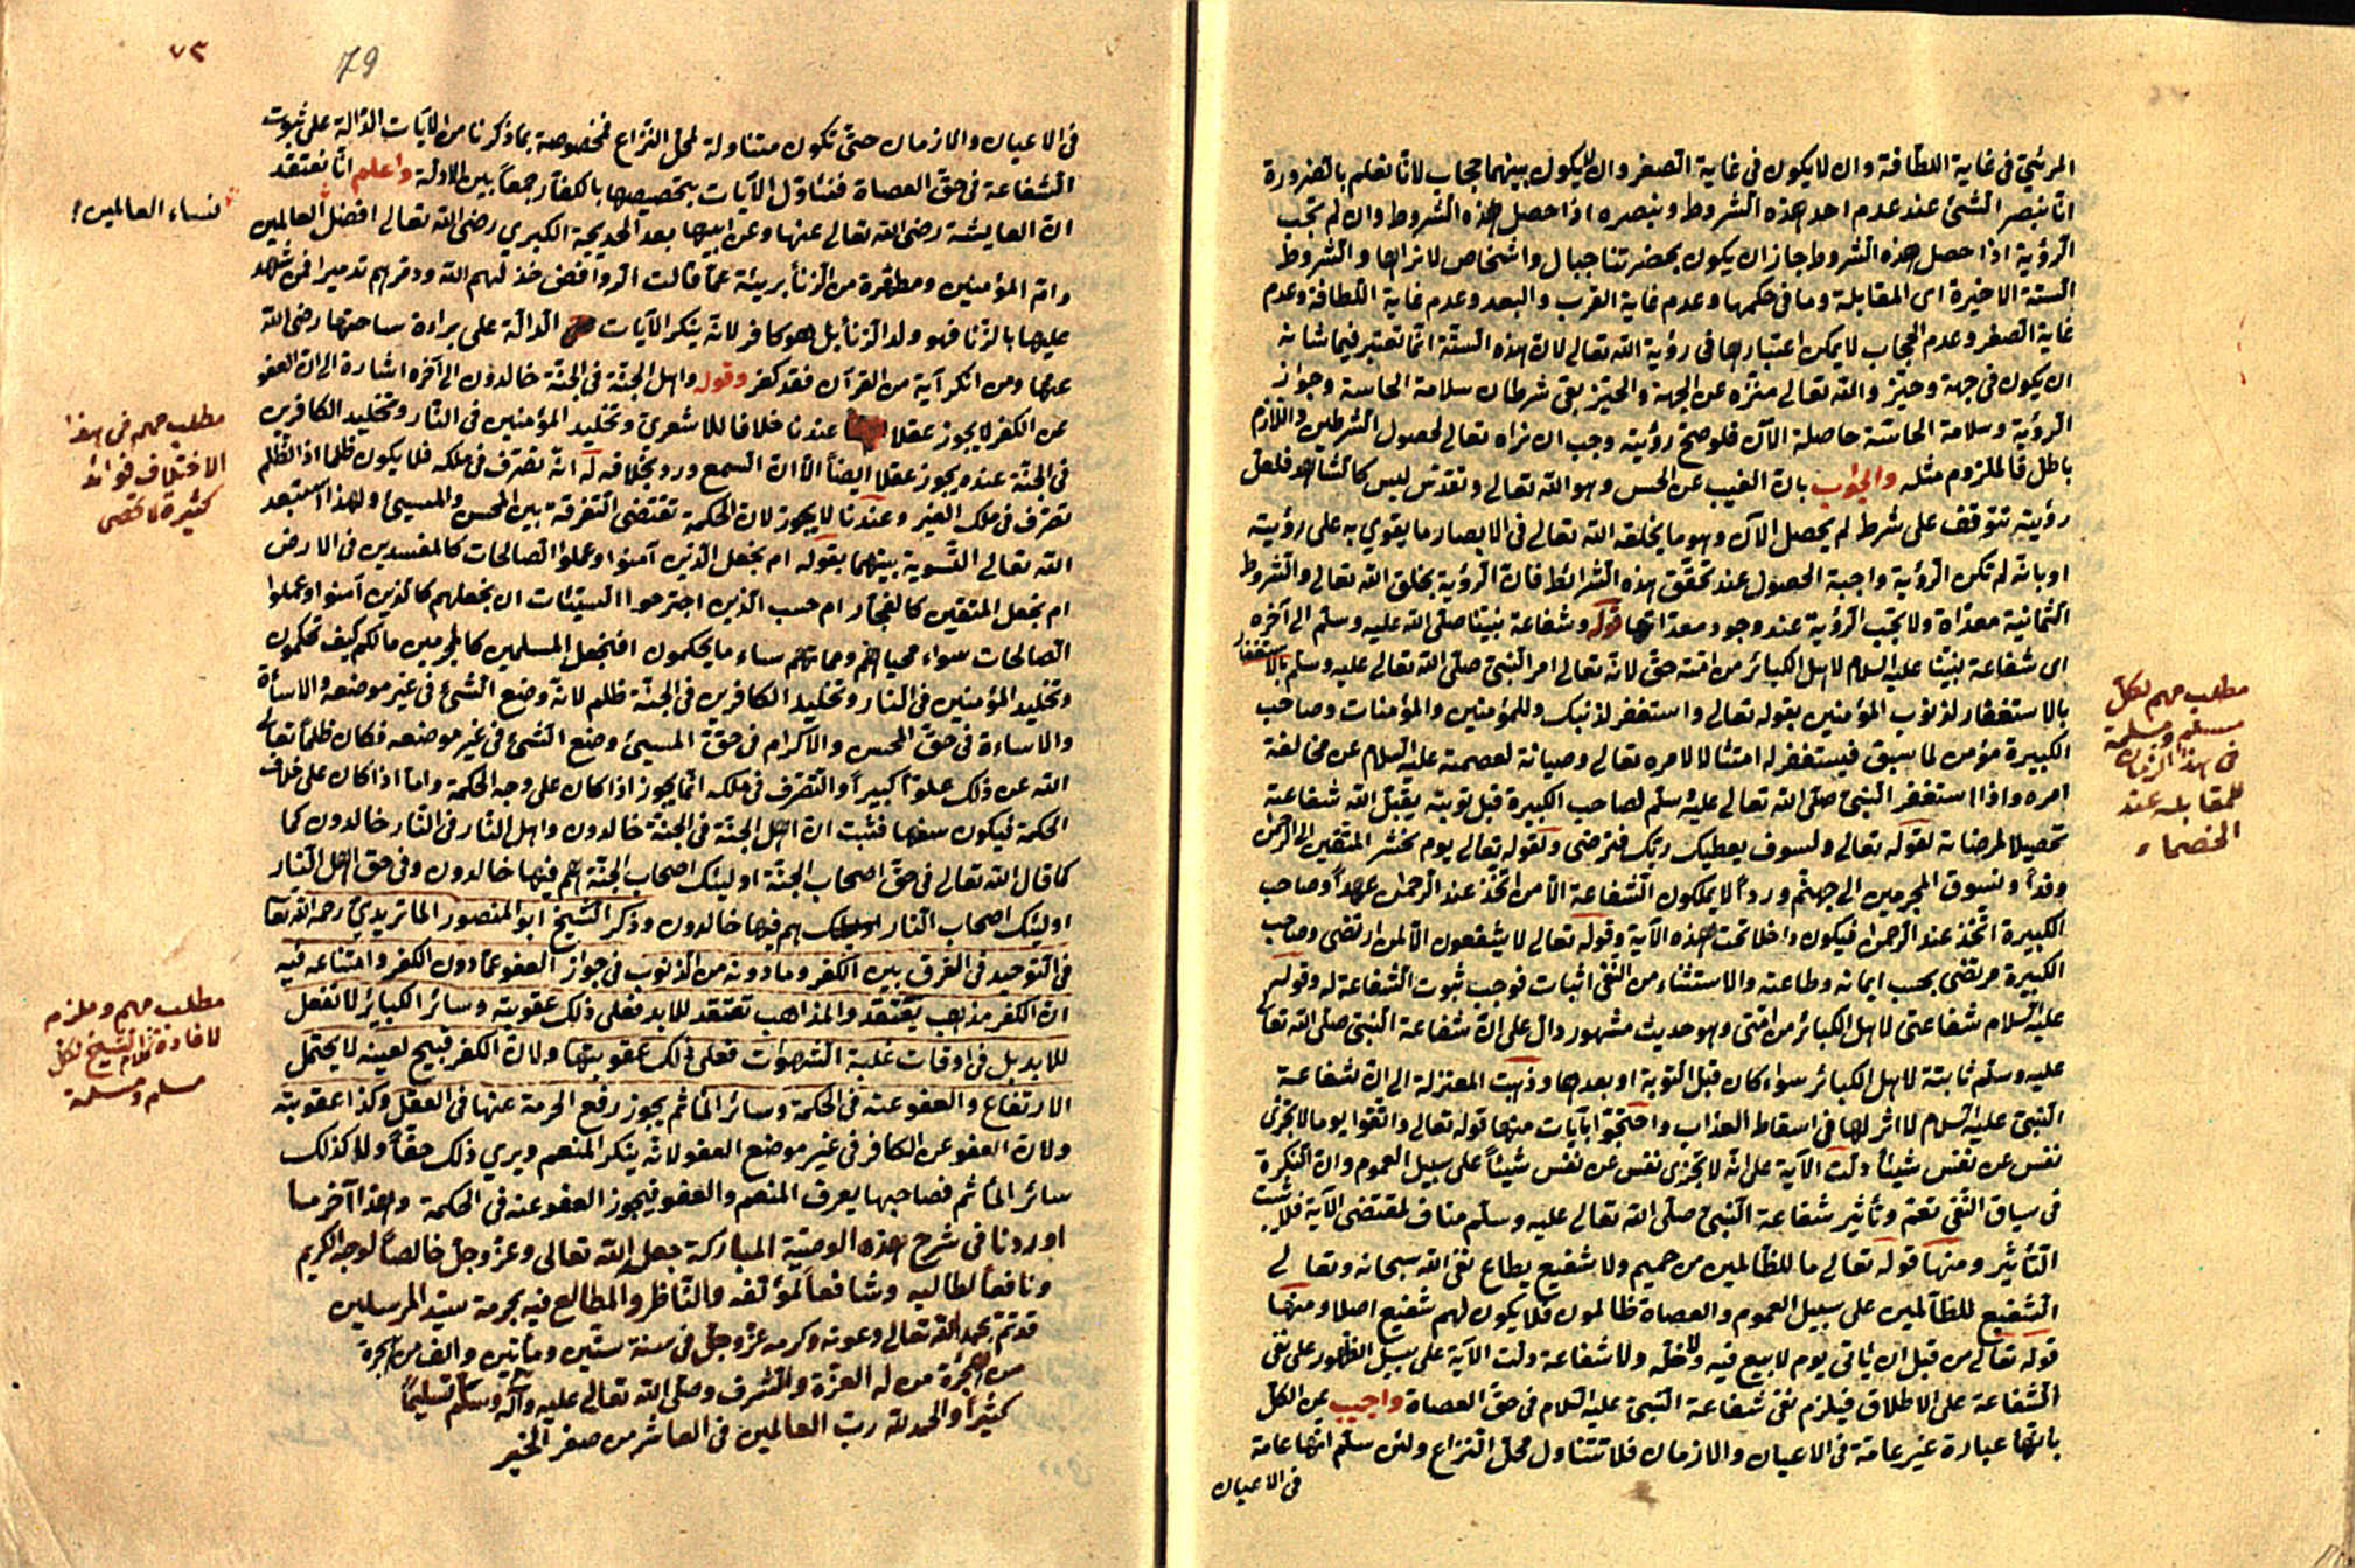 المرئي في غاية اللطافة وان لا يكون في غاية الصغر وان لا يكون بينهما حجاب لانا نعلم بالضرورة
انا نبصر الشئ عند عدم احد هذه الشروط ونبصره اذا حصل هذه الشروط وان لم تجب
الرؤية اذا حصل هذه الشروط جاز ان يكون بحضرتنا جبال واشخاص لا نراها والشروط
الستة الاخيرة اى المقابلة وما في حكمها وعدم غاية القرب والبعد وعدم غاية اللطافة وعدم
غاية الصغر وعدم الحجاب لا يمكن اعتبارها في رؤية الله تعالى لان هذه الستة انما تعتبر فيما شانه
ان يكون في جهة وحيز والله تعالى منزه عن الجهة والحيز بقى شرطان سلامة الحاسة وجواز
الرؤية وسلامة الحاسة حاصلة الآن فلو صح رؤيته وجب ان نراه تعالى لحصول الشرطين واللازم
باطل فالملزوم مثله والجواب بان الغيب عن الحس وهو الله تعالى وتقدس ليس كالشاهد فلعل
رؤيته تتوقف على شرط لم يحصل الآن وهو ما يخلقه الله تعالى في الابصار ما يقوي به على رؤيته
او بانه لم تكن الرؤية واجبة الحصول عند تحقق هذه الشرائط فان الرؤية بخلق الله تعالى والشروط
الثمانية معدات ولا يجب الرؤية عند وجود معداتها قوله وشفاعة نبينا صلى الله عليه وسلم الى آخره
اى شفاعة نبينا عليه السلام لاهل الكبائر من امته حق لانه تعالى امر النبى صلى الله تعالى عليه وسلم بالاستغفار
بالاستغفار لذنوب المؤمنين بقوله تعالى واستغفر لذنبك وللمؤمنين والمؤمنات وصاحب
الكبيرة مؤمن لما سبق فيستغفر له امتثالا لامره تعالى وصيانة لعصمته عليه السلام عن مخالفة
امره واذا استغفر النبى صلى الله تعالى عليه وسلم لصاحب الكبيرة قبل توبته يقبل الله شفاعته
تحصيلا لمرضاته لقوله تعالى ولسوف يعطيك ربك فترضى ولقوله تعالى يوم نحشر المتقين الى الرحمن
وفدا ونسوق المجرمين الى جهنم وردا لا يملكون الشفاعة الا من اتخذ عند الرحمن عهدا وصاحب
الكبيرة اتخذ عند الرحمن فيكون داخلا تحت هذه الآية وقوله تعالى لا يشفعون الا لمن ارتضى وصاحب
الكبيرة مرتضى بحسب ايمانه وطاعته والاستثناء من النفى اثبات فوجب ثبوت الشفاعة له وقوله
عليه السلام شفاعتى لاهل الكبائر من امتى وهو حديث مشهور دال على ان شفاعة النبى صلى الله تعالى
عليه وسلم ثابتة لاهل الكبائر سواء كان قبل التوبة او بعدها وذهبت المعتزلة الى ان شفاعة
النبى عليه السلام لا اثر لها في اسقاط العذاب واحتجوا بآيات منها قوله تعالى واتقوا يوما لا تجزى
نفس عن نفس شيئا دلت الآية على انه لا تجزى نفس عن نفس شيئا على سبيل العموم وان النكرة
في سياق النفى تعم وتأثير شفاعة النبى صلى الله تعالى عليه وسلم مناف لمقتضى الآية فلا يثبت
التأثير ومنها قوله تعالى ما للظالمين من حميم ولا شفيع يطاع نفى الله سبحانه وتعالى
الشفيع للظالمين على سبيل العموم والعصاة ظالمون فلا يكون لهم شفيع اصلا ومنها
قوله تعالى من قبل ان يأتى يوم لا بيع فيه ولا خلة ولا شفاعة دلت الآية على سبيل الظهور على نفى
الشفاعة على الاطلاق فيلزم نفى شفاعة النبى عليه السلام في حق العصاة واجيب عن الكل
بانها عبارة غير عامة في الاعيان والازمان فلا تتناول محل النزاع ولئن سلم انها عامة
في الاعيان
مطلب مهم لكل
مسلم ومسلمة
في هذا الزمان
للمقابلة عند
الخصماء
٧٣
79
في الاعيان والازمان حتى تكون متناولة لمحل النزاع فمخصوصة بما ذكرنا من الآيات الدالة على ثبوت
الشفاعة في حق العصاة فنئاول الآيات بتخصيصها بالكفار جمعا بين الادلة واعلم انا نعتقد
ان العايشة رضى الله تعالى عنها وعن ابيها بعد الخديجة الكبري رضى الله تعالى افضل العالمين
وام المؤمنين ومطهرة من الزنا بريئة عما قالت الروافض خذلهم الله ودمرهم تدميرا فمن شهد
عليها بالزنا فهو ولد الزنا بل هو كافر لانه ينكر الآيات الدالة على براءة ساحتها رضى الله
عنها ومن انكر آية من القرآن فقد كفر وقوله واهل الجنة في الجنة خالدون الى آخره اشارة الى ان العفو
عن الكفر لا يجوز عقلا عندنا خلافا للاشعرى وتخليد المؤمنين في النار وتخليد الكافرين
في الجنة عنده يجوز عقلا ايضا الا ان السمع ورد بخلافه له انه تصرف في ملكه فلا يكون ظلما اذ الظلم
تصرف في ملك الغير وعندنا لا يجوز لان الحكمة تقتضى التفرقة بين المحسن والمسيئ ولهذا استبعد
الله تعالى التسوية بينهما بقوله ام نجعل الذين آمنوا وعملوا الصالحات كالمفسدين في الارض
ام نجعل المتقين كالفجار ام حسب الذين اجترحوا السيئات ان نجعلهم كالذين آمنوا وعملوا
الصالحات سواء محياهم ومماتهم ساء ما يحكمون افنجعل المسلمين كالمجرمين ما لكم كيف تحكمون
وتخليد المؤمنين في النار وتخليد الكافرين في الجنة ظلم لانه وضع الشئ في غير موضعه والاساءة
والاساءة في حق المحسن والاكرام في حق المسيئ وضع الشئ في غير موضعه فكان ظلما تعالى
الله عن ذلك علوا كبيرا والتصرف في ملكه انما يجوز اذا كان على وجه الحكمة واما اذا كان على خلاف
الحكمة فيكون سفها فثبت ان اهل الجنة في الجنة خالدون واهل النار في النار خالدون كما
كما قال الله تعالى في حق اصحاب الجنة اولئك اصحاب الجنة هم فيها خالدون وفي حق اهل النار
اولئك اصحاب النار هم فيها خالدون وذكر الشيخ ابو المنصور الماتريدي رحمه الله تعالى
في التوحيد في الفرق بين الكفر وما دونه من الذنوب في جواز العفو عما دون الكفر وامتناعه فيه
ان الكفر مذهب يعتقد والمذاهب تعتقد للابد فعلى ذلك عقوبته وسائر الكبائر لا تفعل
للابد بل في اوقات غلبة الشهوات فعلى ذلك عقوبتها ولان الكفر قبيح لعينه لا يحتمل
الارتفاع والعفو عنه في الحكمة وسائر المآثم يجوز رفع الحرمة عنها في العقل وكذا عقوبته
ولان العفو عن الكافر في غير موضع العفو لانه ينكر المنعم ويري ذلك حقا ولا كذلك
سائر المآثم فصاحبها يعرف المنعم والعفو فيجوز العفو عنه في الحكمة وهذا آخر ما
اوردنا في شرح هذه الوصية المباركة جعل الله تعالى وعز وجل خالصا لوجه الكريم
ونافعا لطالبيه وشافعا لمؤلفه والناظر والمطالع فيه بحرمة سيد المرسلين
قد تم بحمد الله تعالى وعونه وكرمه عز وجل في سنة ستين ومأتين والف من هجرة
من الهجرة من له العزة والشرف وصلى الله تعالى عليه وآله وسلم تسليما
كثيرا والحمد لله رب العالمين في العاشر من صفر الخير
نساء العالمين
مطلب مهم في هذا
الاختلاف فوائد
كثيرة لا تحصى
مطلب مهم وملزم
لافادة كلام الشيخ لكل
مسلم ومسلمة